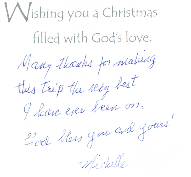 Wishing you a Christmas
filled with God's love.
Many thanks for making
this trip the very best
I have ever been on.
God bless you and yours!
Michelle